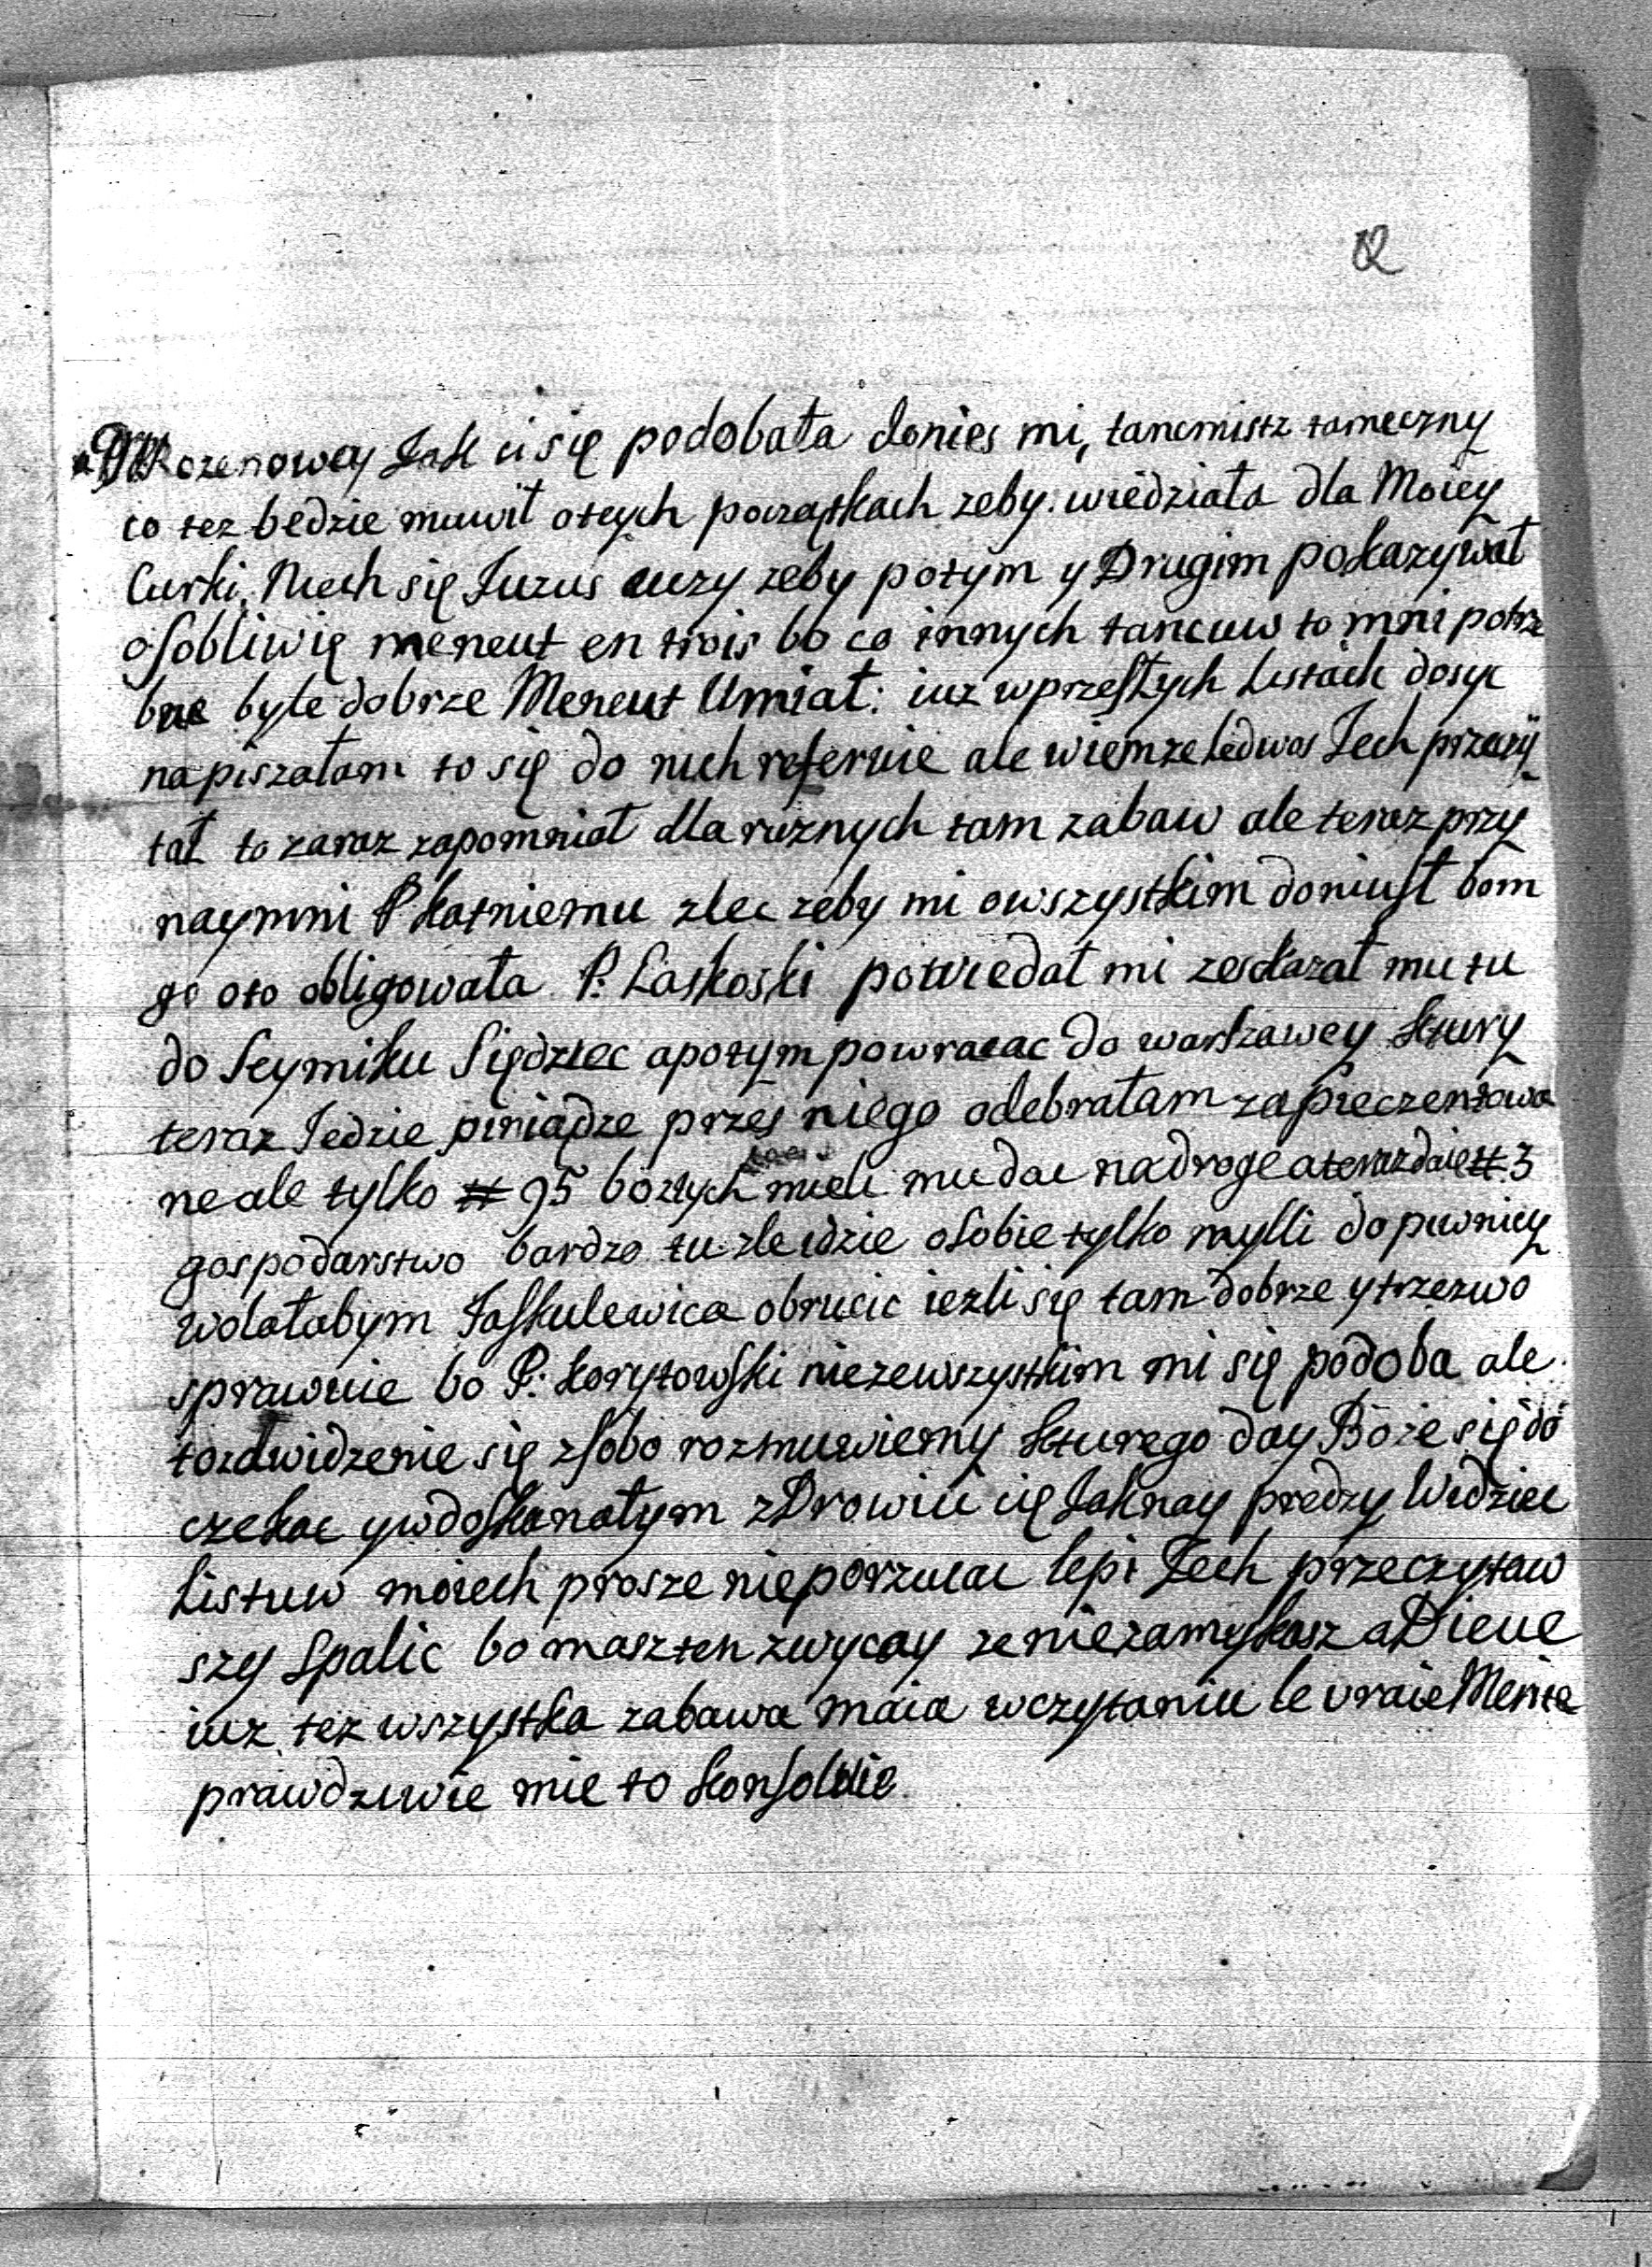 Rozenowey Jak ci się podobała donies mi, tancmistz tameczny
co tez bedzie muwił otych początkach zeby wiedziała dla Moiey
Curki. Niech się Juzus uczy zeby potym y Drugim pokazywał
osobliwię meneut en trois bo co innych tancuw to mni potrze
bne byłe dobrze Meneut Umiał: iuz wprzeszłych Listach dosyc
napiszałam to się do nich referuie ale wiem ze ledwos Jech przeczy
tał to zaraz zapomniał dla ruznych tam zabaw ale teraz przy
naymni P kotniemu zlec zeby mi owszystkim doniusł bom
go oto obligowała P: Laskoski powiedał mi zes kazał mu tu
do Seymiku Siędziec apotym powracac do warszawey ktury
teraz Jedzie piniądze przes niego odebrałam zapieczentowa
ne ale tylko # 95 bo ztych mieli mu dac na droge a teraz daie # 3
gospodarstwo bardzo tu zle idzie osobie tylko mysli do piwnicy
wolałabym Jaskulewica obrucic iezli się tam dobrze y trzezwo
sprawuie bo P: korytowski niezewszystkim mi się podoba ale
to zdwidzenie się zsobo rozmuwiemy kturego day Boże się do
czekac y wdoskonałym zDrowiu cię Jaknay predzy Widziec
Listuw moiech prosze nie porzucac lepi Jech przeczytaw
szy spalic bo masz ten zwycay ze niezamykasz aDieue
iuz tez wszystka zabawa maia wczytaniu le vraie Mente
prawdziwie mie to konsoluie